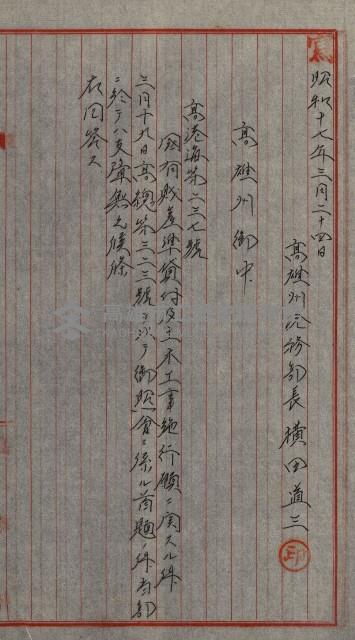 寫
昭和十七年三月二十四日
高雄州港務部長橫田道三
印
高雄州御中
高港海第二三七號
國有財產準貸付及土木工事施行願ニ関スル件
三月十九日高總第三二三號ヲ以テ御照會ニ係ル首題ノ件當部
ニ於テハ支障無之候條
右回答ス